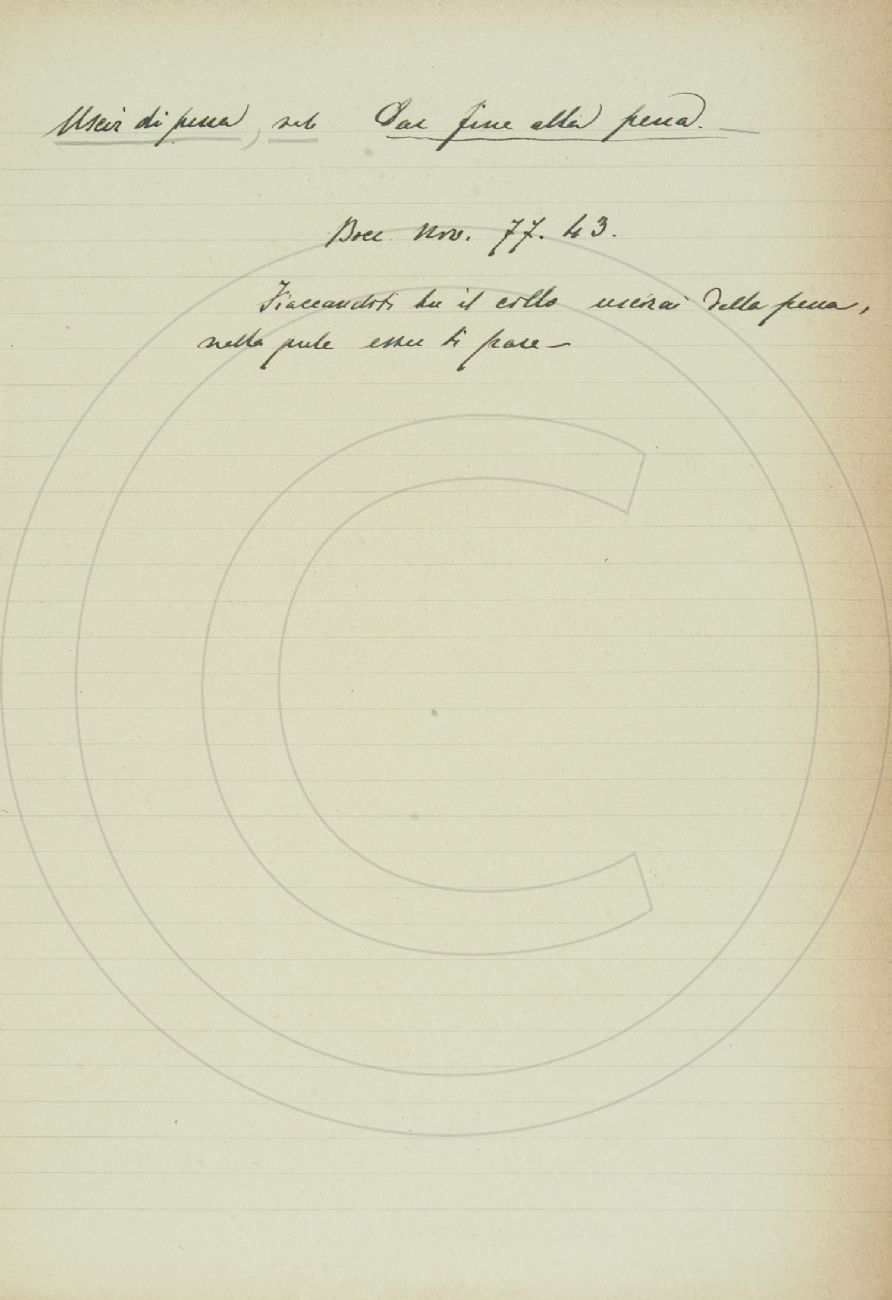 Uscir di pena, val Dar fine alla pena.
Bocc. Nov. 77. 43.
Fiaccandoti tu il collo uscirai della pena,
nella quale esser ti pare